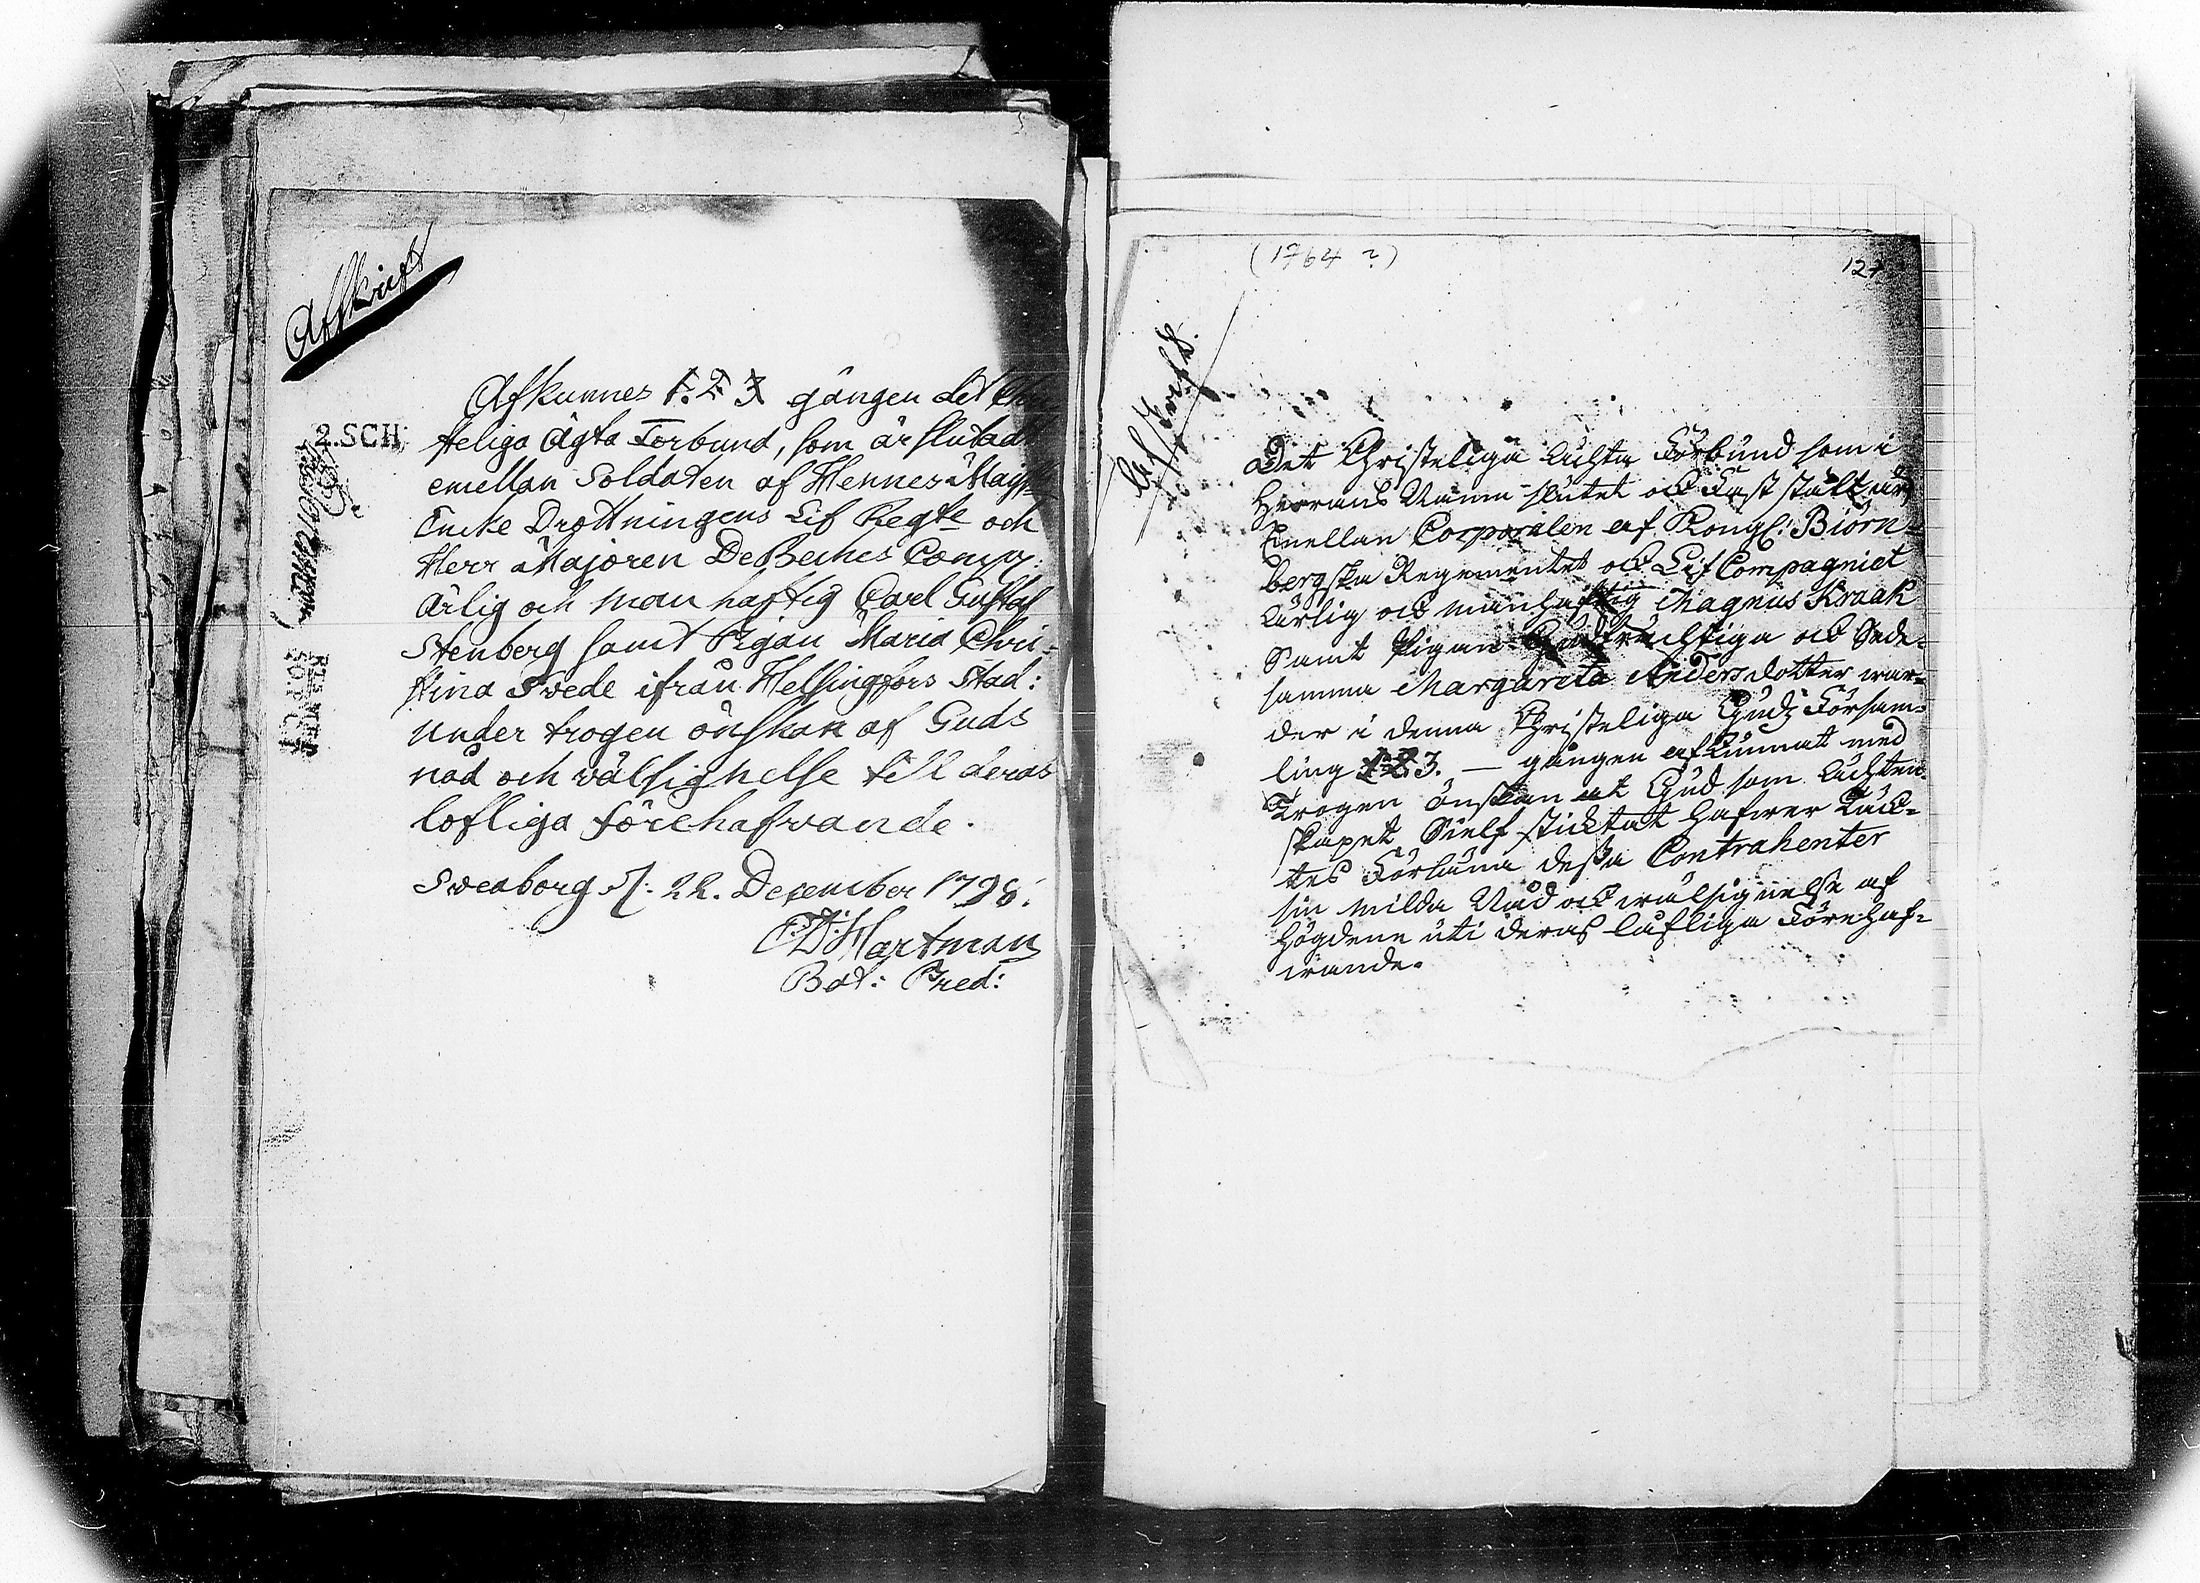 Afskrift
Afkunnes 1. 2. 3 gången det Chri
steliga Ägta Forbund, som är slutadt
emellan Soldaten af Hennes Maijst
Enke Drottningens Lif Regte och
Herr Majoren DeBeches Comp:
Ärlig och manhaftig Carl Gustaf
Stenberg samt Pigan Maria Chri-
stina Svede ifrån Helsingfors Stad:
under trogen önskan af Guds
nåd och välsignelse till deras
lofliga förehafvande.
Sveaborg d. 22. December 1798.
Hartman
Bat: Pred:
2.SCH
(1764 ?)
127
Det Christeliga Ächta Förbund som i
Herrans Namn slutet och Fast stält är
Emellan Corporalen af Kongl: Biörn-
bergska Regementet och Lif Compagniet
Ärlig och manhaftig Magnus Kraak
Samt Pigan Gudfruchtiga och Sede-
samma Margareta Andersdotter war-
der i denna Christeliga Gudz Försam-
ling 1. 2. 3. — gången afkunnat med
Trogen önskan at Gud som Ächten-
skapet Sielf stichtat hafwer Täck-
tes Förläna dessa Contrahenter
sin milda Nåd och wälsignelse af
Högdene uti deras lofliga Förehaf-
wande.